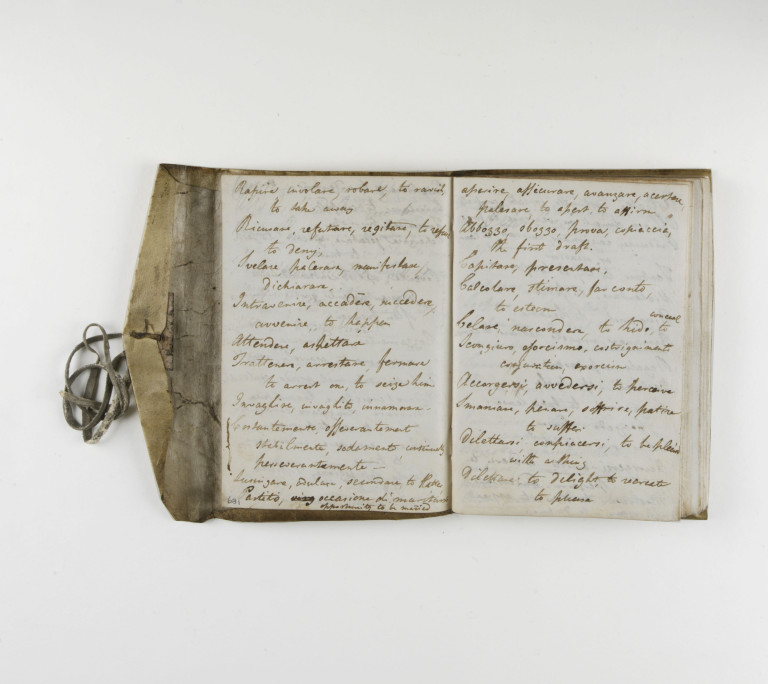 Rapire involare, robare, to ravish
to take away
Ricusare, refutare, regitare, to refuse
to deny,
Svelare, palesare, manifestare,
dichiarare,
Intravenire, accadere, succedere,
avvenire, to happen
Attendere, aspettare
Trattenere, arrestare fermare
to arrest one, to seize him
Invaghire, invaghito, innamorare
Costantemente,
stabilmente, sodamente continually
perseverantemente
Lusingare, adulare, secondare, to
Partito, occasione di maritare
opportunity to be married
aperire, assicurare, avanzare,
palesare, to assert to affirm
Abbozzo, sbozzo, prova, copiaccia,
the first draft.
Capitare, presentare,
Calcolare, stimare, far conto,
to esteem
conceal
Celare, nascondere, to hide, to
Scongiuro, esorcismo,
Accorgersi, avvedersi, to perceive
Smaniare, penare, soffrire, patire
to suffer
Dilettarsi compiacersi, to be pleased
with a thing
Dilettare to delight to
to please